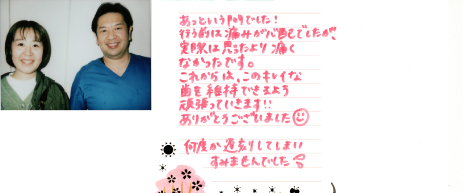 あっという間でした!
行う前は痛みが心配でしたが、
実際は思ったより痛く
なかったです。
これからは、このキレイな
歯を維持できるよう
頑張っていきます!!
ありがとうございました
何度か遅刻してしまい
すみませんでした